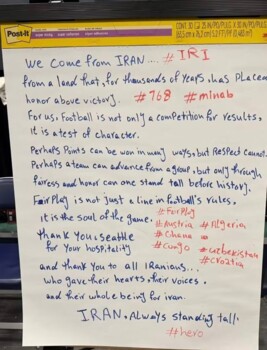 Post-it
We come from IRAN.... #IRI
from a land that, for thousands of years has placed
honor above victory. #768 #minab
For us, Football is not only a competition for results,
it is a test of character.
Perhaps Points can be won in many ways, but Respect cannot.
Perhaps a team can advance from a group, but only through
fairess and honor can one stand tall before history.
Fair Play is not just a line in football's rules,
it is the soul of the game. #FairPlay
#Austria #Algeria
Thank you, seattle #Ghana
for your hospitality #congo #uzbekistan
#croatia
and thank you to all IRanians...
who gave their hearts, their voices,
and their whole being for iran.
IRAN, Always standing tall.
#hero